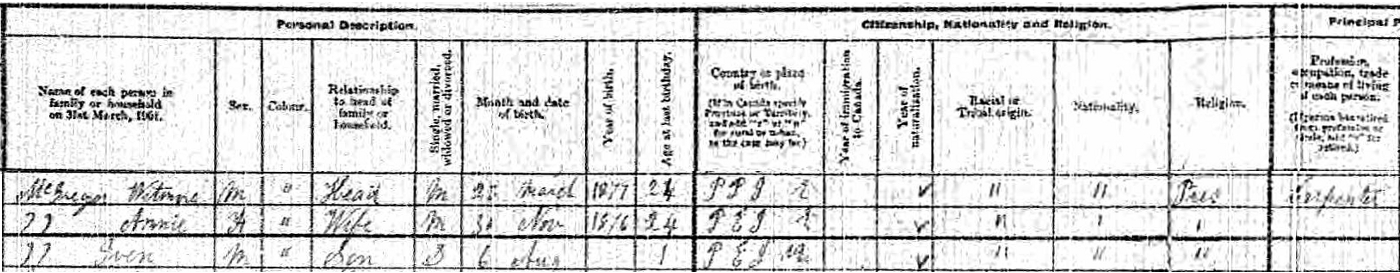 Personal Description. Citizenship, Nationality and Religion. Principal
Name of each person in family or household on 31st March, 1901. Sex. Colour. Relationship to head of family or household. Single, married, widowed or divorced. Month and date of birth. Year of birth. Age at last birthday. Country or place of birth. (If in Canada specify Province or Territory, and add "r" or "u" for rural or urban, as the case may be.) Year of immigration to Canada. Year of naturalization. Racial or Tribal origin. Nationality. Religion. Profession, occupation, trade or means of living of each person.
McGregor M " Head M 25 March 1877 24 " " Pres Carpenter
" Annie F " Wife M Nov 1876 24 P E I " "
" M " Son S 6 Aug 1 P E I " " "